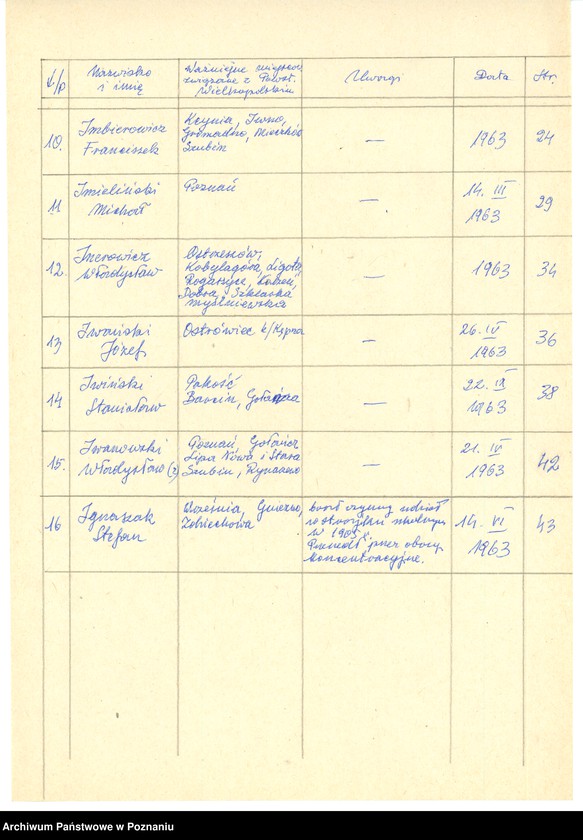 L/p Nazwisko i imię Ważniejsze miejsca związane z Powst. Wielkopolskim Uwagi Data Str.
10. Imbierowicz Franciszek Kcynia, Iwno, Gromadno, Mieczków Szubin — 1963 24
11 Imieliński Michał Poznań — 14. III 1963 29
12. Inerowicz Władysław Ostrzeszów, Kobylagóra, Ligota, Rogaszyce, Dobra, Szklarka myślniewska — 1963 34
13 Iwański Józef Ostrówiec k/Kępna — 26. IV 1963 36
14 Iwiński Stanisław Pakość Barcin, Gołańcza — 22. IX 1963 38
15. Iwanowski Władysław (?) Poznań, Gołańcz Lipa Nowa i Stara Szubin, Rynarzewo — 21. IV 1963 42
16 Ignaszak Stefan Września, Gniezno, Zdziechowa brał czynny udział w strajku szkolnym w 1905 r. Przeszedł przez obozy koncentracyjne. 14. VI 1963 43
Archiwum Państwowe w Poznaniu